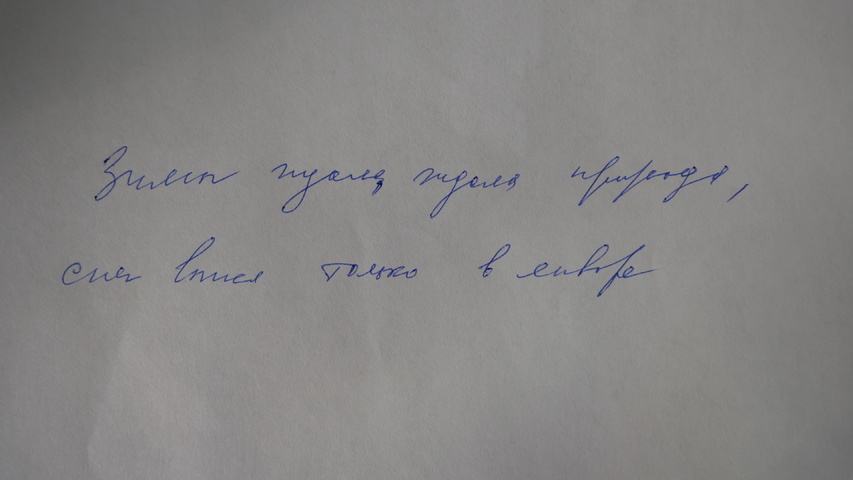 Зимы ждала, ждала природа,
снег выпал только в январе